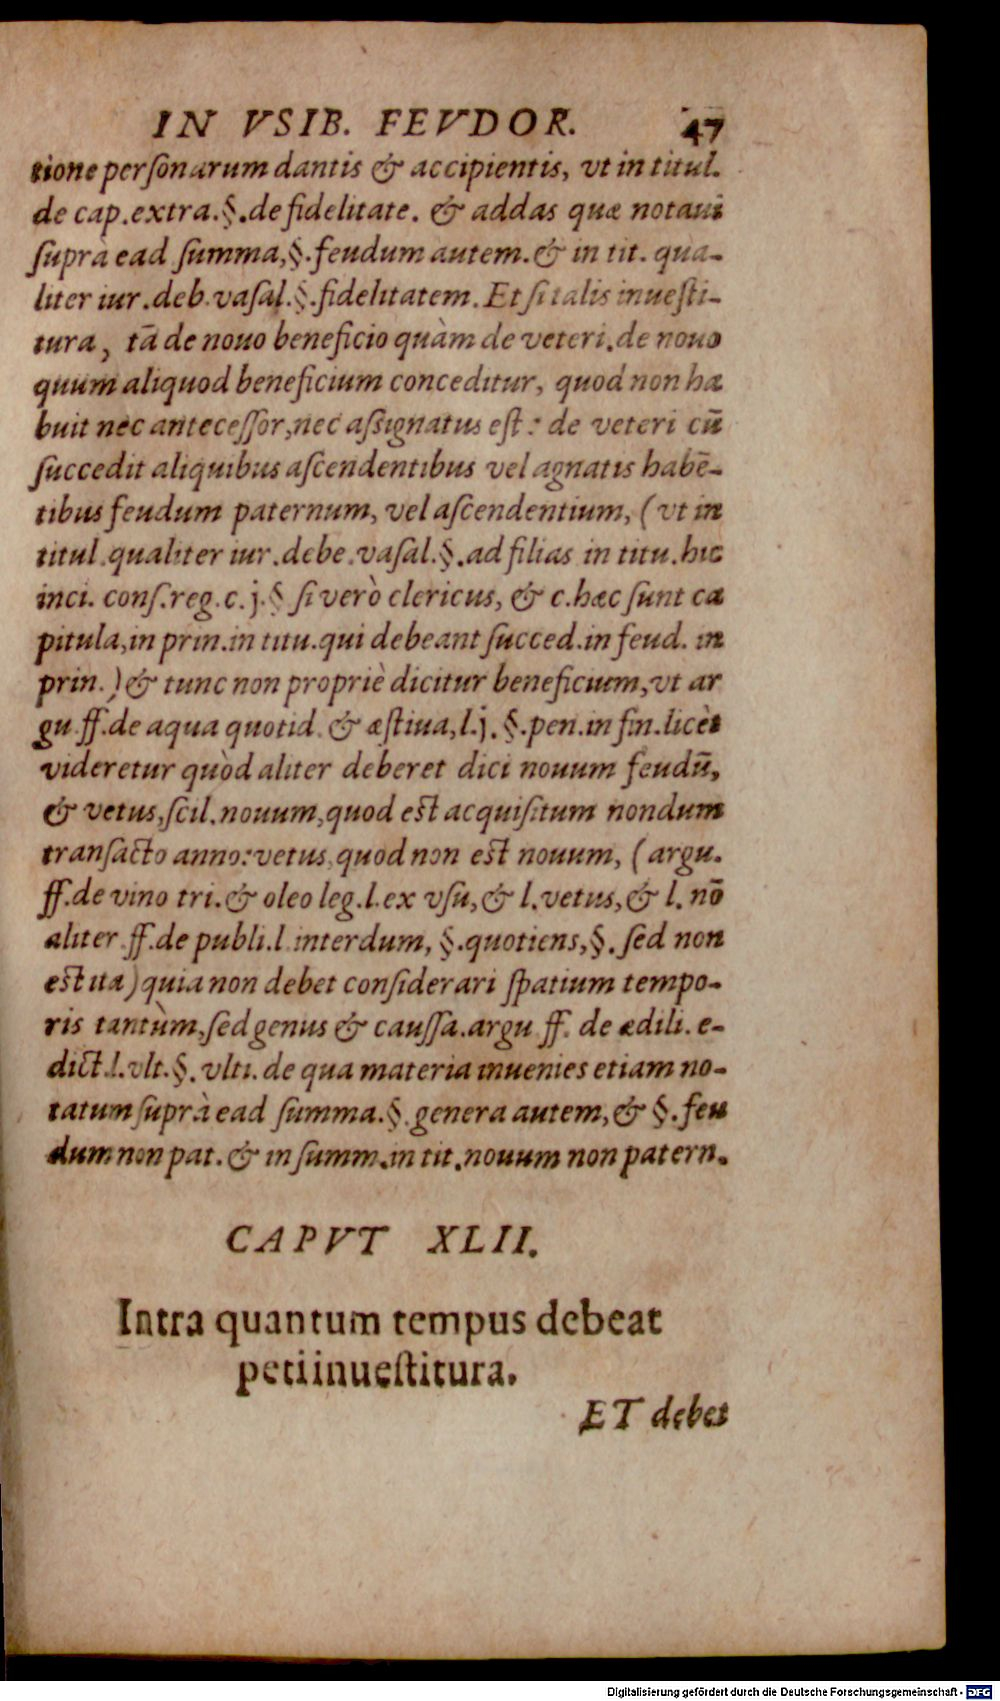 IN VSIB. FEVDOR. 47
tione personarum dantis & accipientis, vt in titul.
de cap. extra. §. de fidelitate. & addas quæ notaui
suprà ead summa, §. feudum autem. & in tit. qua-
liter iur. deb. vasal. §. fidelitatem. Et si talis inuesti-
tura, tā de nouo beneficio quàm de veteri. de nouo
quum aliquod beneficium conceditur, quod non ha
buit nec antecessor, nec assignatus est: de veteri cū
succedit aliquibus ascendentibus vel agnatis habē-
tibus feudum paternum, vel ascendentium, (vt in
titul. qualiter iur. debe. vasal. §. ad filias in titu. hic
inci. cons. reg. c. j. § si verò clericus, & c. hæc sunt ca
pitula, in prin. in titu. qui debeant succed. in feud. in
prin.) & tunc non propriè dicitur beneficium, vt ar
gu. ff. de aqua quotid. & æstiua, l. j. §. pen. in fin. licèt
videretur quòd aliter deberet dici nouum feudū,
& vetus, scil. nouum, quod est acquisitum nondum
transacto anno: vetus quod non est nouum, (argu.
ff. de vino tri. & oleo leg. l. ex vsu, & l. vetus, & l. nō
aliter ff. de publi. l interdum, §. quotiens, §. sed non
est ita) quia non debet considerari spatium tempo-
ris tantùm, sed genus & caussa. argu ff. de ædili. e-
dict. l. vlt. §. vlti. de qua materia inuenies etiam no-
tatum suprà ead summa. §. genera autem, & §. feu
dum non pat. & in summ. in tit. nouum non patern.
CAPVT XLII.
Intra quantum tempus debeat
peti inuestitura.
ET debet
Digitalisierung gefördert durch die Deutsche Forschungsgemeinschaft - DFG